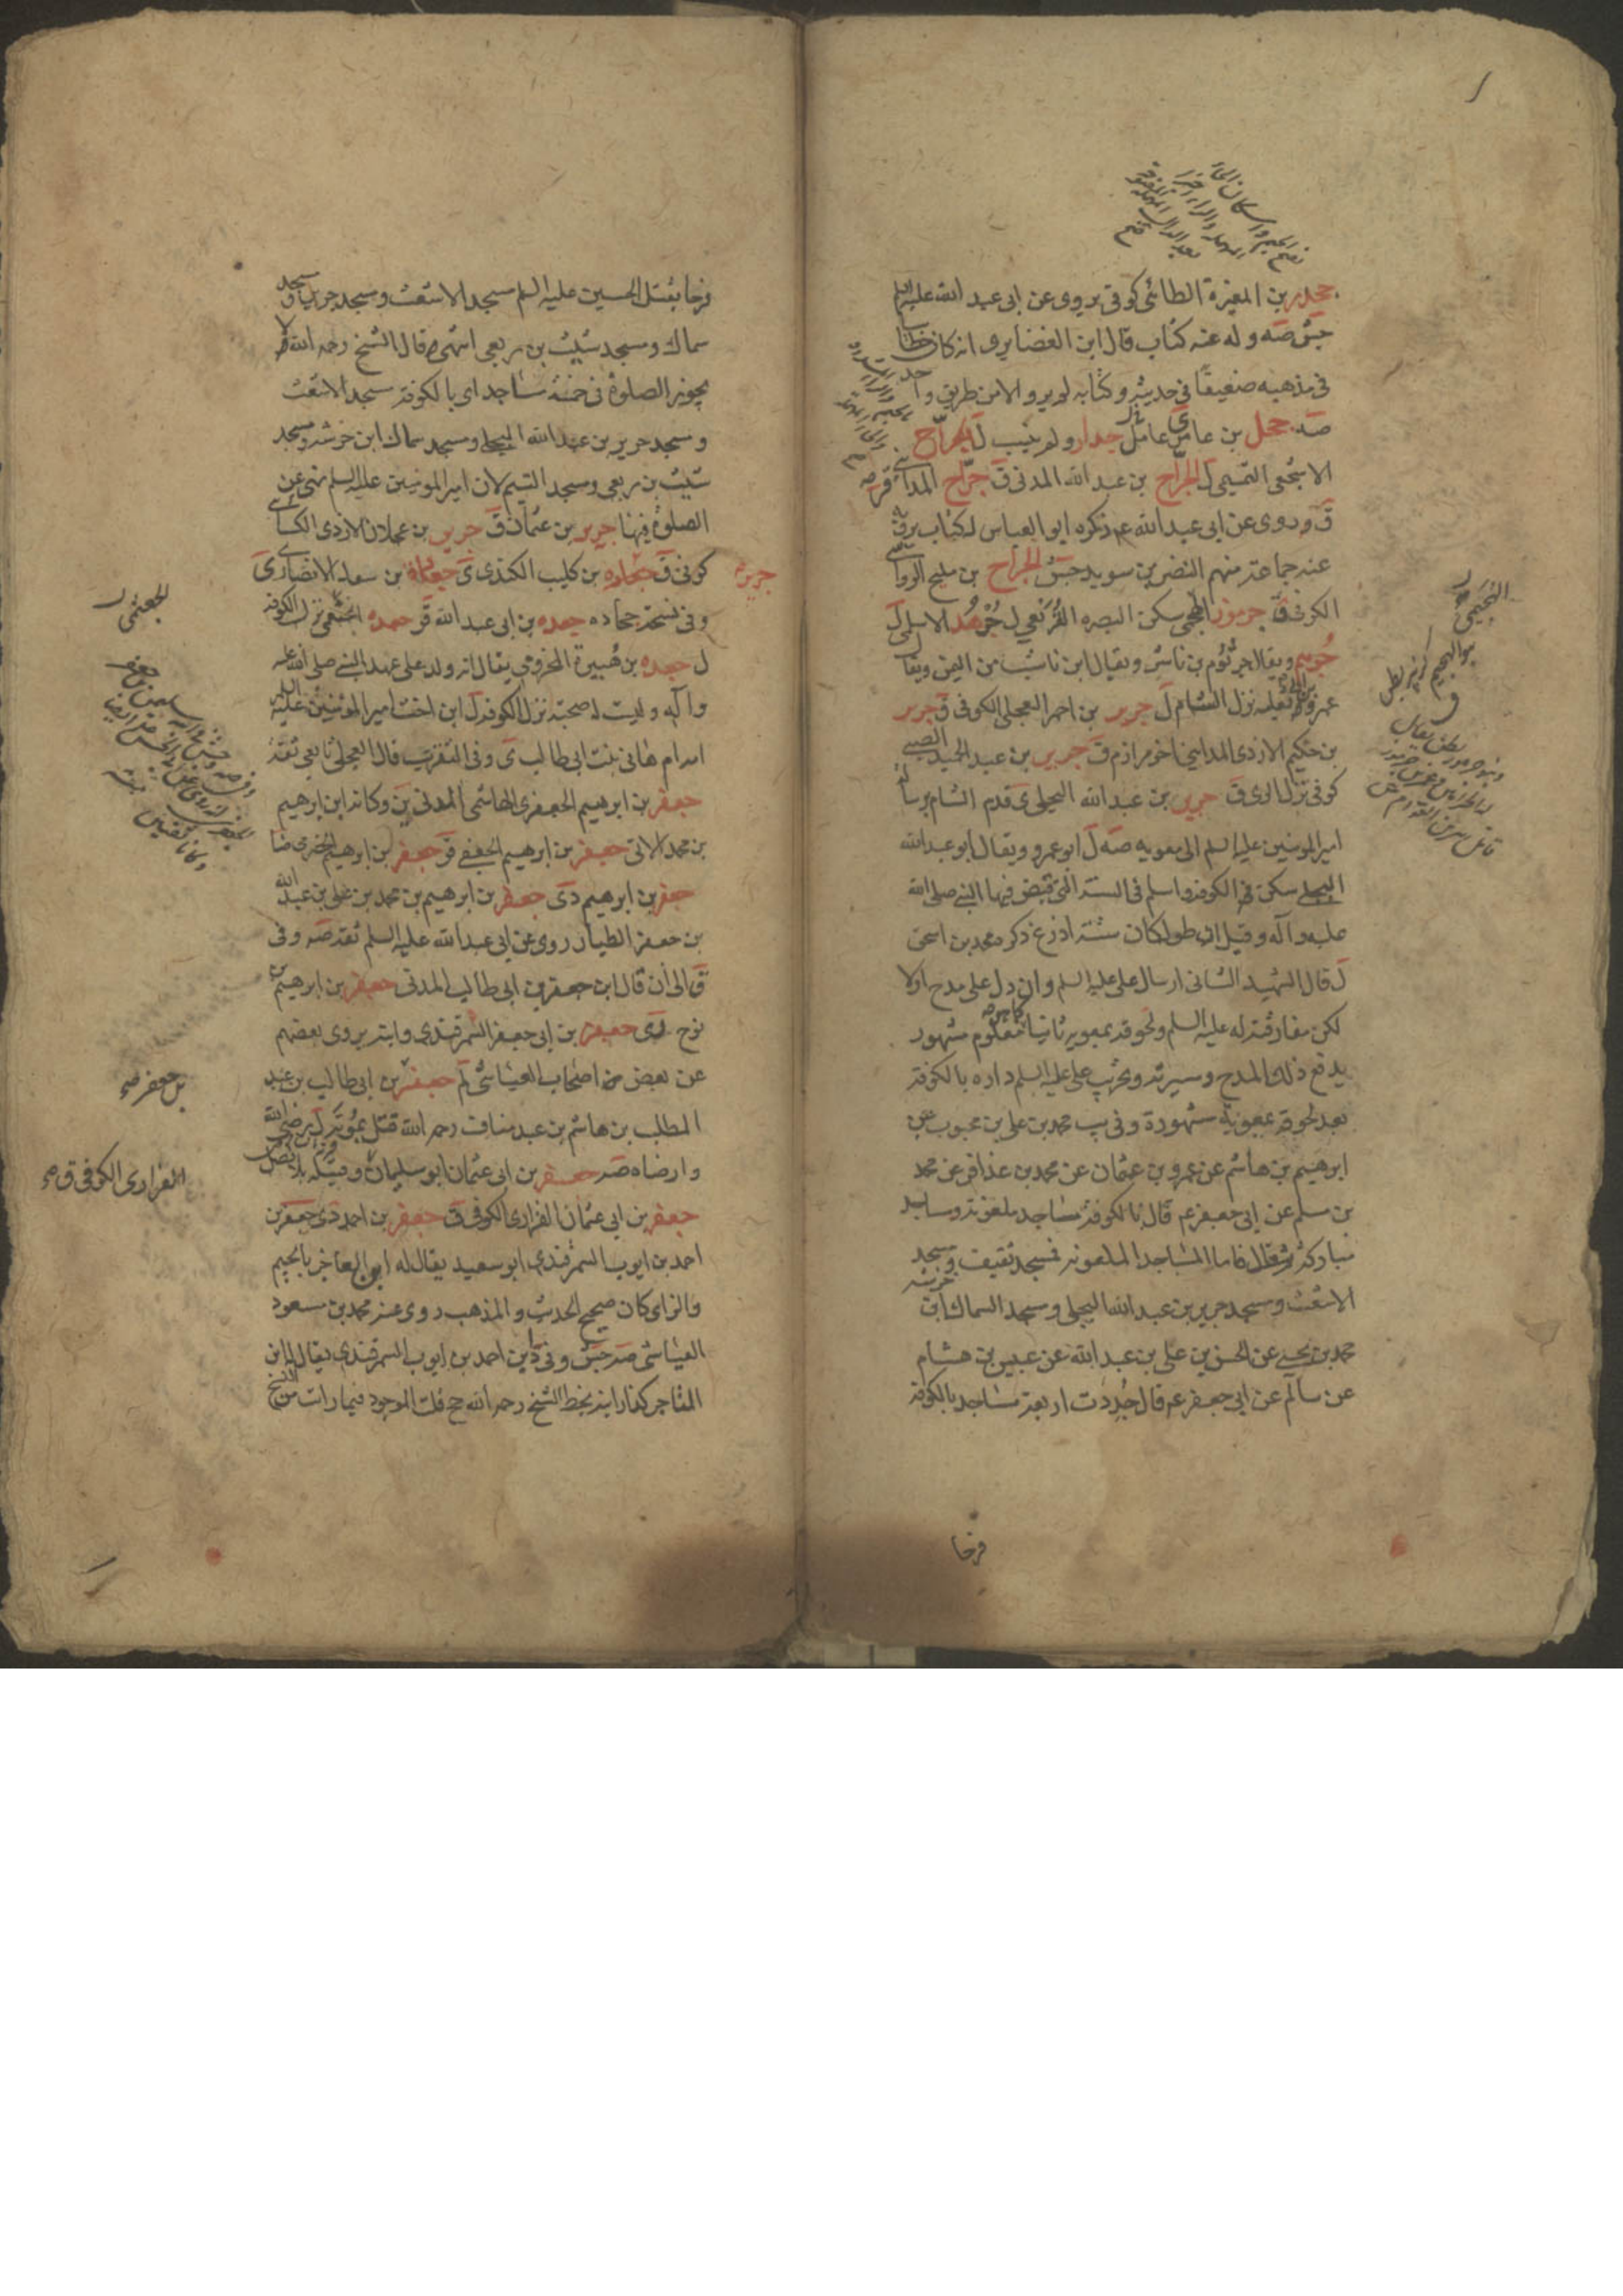 جحدر بن المغيرة الطائى كوفى يروى عن ابى عبد الله عليه السلم
جش صه وله عنه كتاب قال ابن الغضايرى انه كان خطابيا
فى مذهبه ضعيفا فى حديثه وكتابه لم يرو الا من طريق واحد
صه جحل بن عامر ى عامل جدار ولم ينسب ل الجراح
الاشجعى التميمى ل الجراح بن عبد الله المدنى ق جراح المداينى قر صه
ق وروى عن ابى عبد الله عم ذكره ابو العباس له كتاب يرويه
عنه جماعة منهم النضر بن سويد جش الجراح بن مليح الرواسى
الكوفى ق جرموز الهجيمى سكن البصره القريعى ل جرهد الاسلمى ل
جرهم ويقال جرثوم بن ناشر ويقال ابن ناشب من اليمن ويقال
عمرو ابو ثعلبه نزل الشام ل جرير بن احمر العجلى الكوفى ق جرير
بن حكيم الازدى المداينى اخو مرازم ق جرير بن عبد الحميد الضبى
كوفى نزل الرى ق جرير بن عبد الله البجلى ى قدم الشام برسالة
امير المومنين عليه السلم الى معويه صه ل ابو عمرو ويقال ابو عبد الله
البجلى سكن الكوفه واسلم فى السنه التى قبض فيها النبى صلى الله
عليه وآله وقيل ان طوله كان ستة اذرع ذكره محمد بن اسحق
ل قال الشهيد الثانى ارسال على عليه السلم وان دل على مدح اولا
لكن مفارقته له عليه السلم ولحوقه بمعويه ثانيا معلوم مشهور
يدفع ذلك المدح وسيرته وتخريب على عليه السلم داره بالكوفه
بعد لحوقه بمعويه مشهورة وفى يب محمد بن على بن محبوب عن
ابرهيم بن هاشم عن عمرو بن عثمان عن محمد بن عذافر عن محمد
بن مسلم عن ابى جعفر عم قال بالكوفة مساجد ملعونه ومساجد
مباركة فاما المساجد الملعونه فمسجد ثقيف ومسجد
الاشعث ومسجد جرير بن عبد الله البجلى ومسجد السماك بن خرشه
محمد بن يحيى عن الحسن بن على بن عبد الله عن عبيس بن هشام
عن سالم عن ابى جعفر عم قال جددت اربعة مساجد بالكوفه
فرحا
فرحا بقتل الحسين عليه السلم مسجد الاشعث ومسجد جرير ومسجد
سماك ومسجد شبث بن ربعى انتهى قال الشيخ رحمه الله لا
يجوز الصلوة فى خمسة مساجد اى بالكوفه مسجد الاشعث
ومسجد جرير بن عبد الله البجلى ومسجد سماك ابن خرشه ومسجد
شبث بن ربعى ومسجد التيم لان امير المومنين عليه السلم نهى عن
الصلوة فيها جرير بن عثمان ق جرير بن عجلان الازدى الكسائى
كوفى ق جعاده بن كليب الكندى ى جعاده بن سعد الانصارى
وفى نسخة جحاده جعده بن ابى عبد الله ق جعده الجشمى نزل الكوفه
ل جعده بن هبيرة المخزومى يقال انه ولد على عهد النبى صلى الله عليه
وآله وليست له صحبة نزل الكوفه ل ابن اخت امير المومنين عليه السلم
امه ام هانى بنت ابى طالب ى وفى التقريب قال العجلى تابعى ثقة
جعفر بن ابرهيم الجعفرى الهاشمى المدنى ين وكانه ابن ابرهيم
بن محمد الاتى جعفر بن ابرهيم الجعفى قر جعفر بن ابرهيم الحضرمى ضا
جعفر بن ابرهيم دى جعفر بن ابرهيم بن محمد بن على بن عبد الله
بن جعفر الطيار روى عن ابى عبد الله عليه السلم ثقه صه وفى
ق الى ان قال ابن جعفر بن ابى طالب المدنى جعفر بن ابرهيم بن
نوح دى جعفر بن ابى جعفر السمرقندى وابنه يروى بعضهم
عن بعض من اصحاب العياشى لم جعفر بن ابى طالب بن عبد
المطلب بن هاشم بن عبد مناف رحمه الله قتل بموته ل ى رضى الله
وارضاه صه جعفر بن ابى عثمان ابو سليمان
جعفر بن ابى عثمان الفزارى الكوفى ق جعفر بن احمد دى جعفر بن
احمد بن ايوب السمرقندى ابو سعيد يقال له ابن العاجز بالجيم
والزاى كان صحيح الحديث والمذهب روى عنه محمد بن مسعود
العياشى صه جش وفى د ابن احمد بن ايوب السمرقندى يقال له ابن
التاجر كذا رايته بخط الشيخ رحمه الله جح قلت الموجود فيما رايت من نسخ
جرير
الفزارى الكوفى ق صح
بن جعفر صح